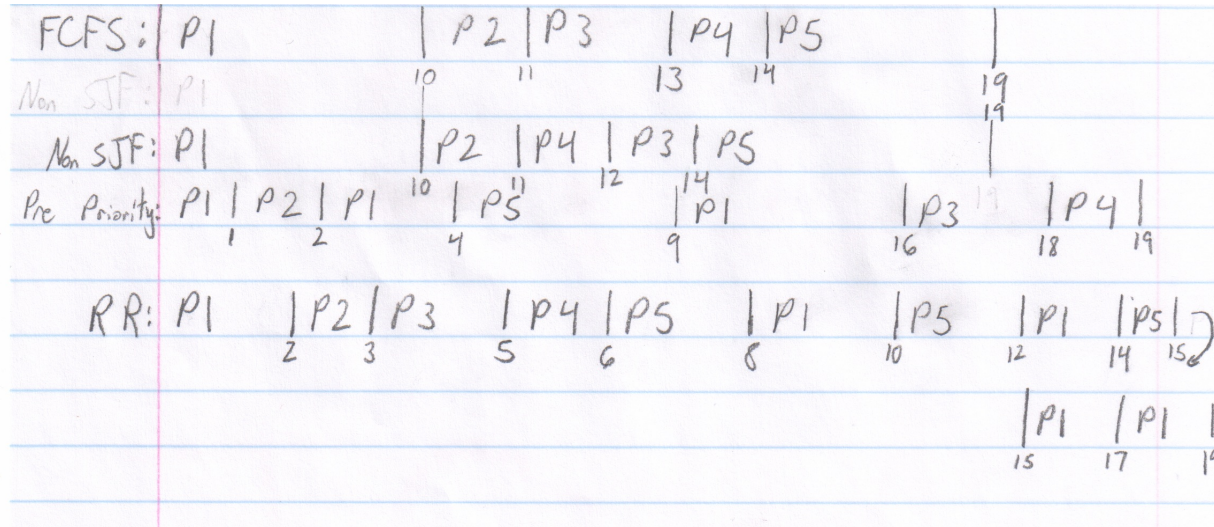 FCFS: | P1 | P2 | P3 | P4 | P5 |
10 11 13 14 19
Non SJF: P1
19
Non SJF: P1 | P2 | P4 | P3 | P5 |
10 11 12 14 19
Pre Priority: P1 | P2 | P1 | P5 | P1 | P3 | P4 |
1 2 4 9 16 18 19
RR: P1 | P2 | P3 | P4 | P5 | P1 | P5 | P1 | P5 |
2 3 5 6 8 10 12 14 15
| P1 | P1 |
15 17